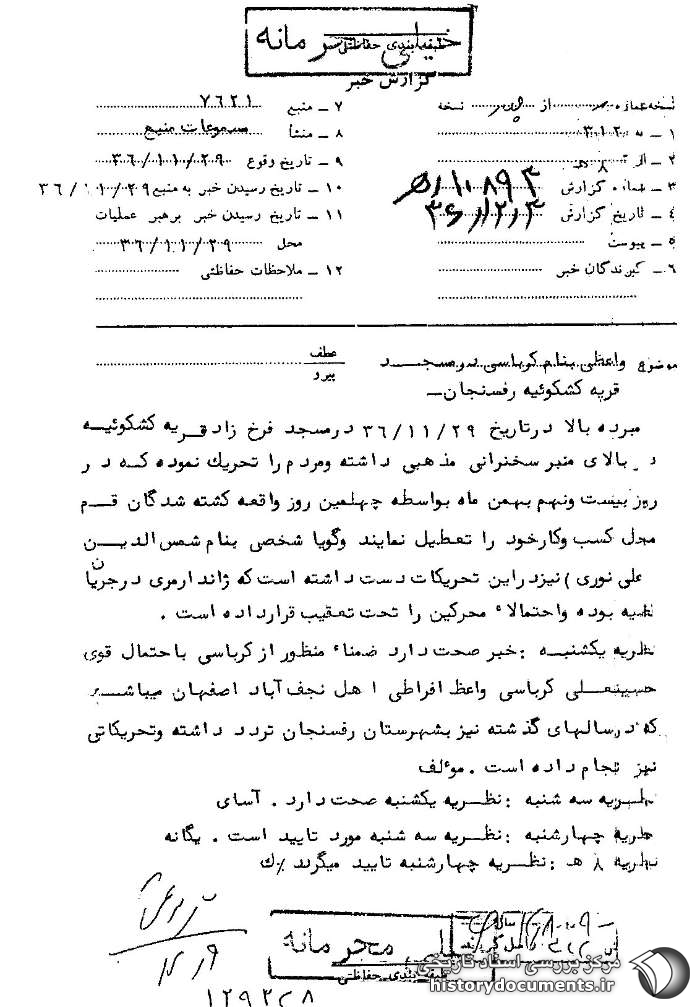 خیلی محرمانه
طبقه‌بندی حفاظتی
گزارش خبر
نسخه شماره از نسخه
۱ ـ به ۳۱۲
۲ ـ از ۸ هـ
۳ ـ شماره گزارش ۱۰۸۹۳/ه
۴ ـ تاریخ گزارش ۳۶/۱۲/۳
۵ ـ پیوست
۶ ـ گیرندگان خبر
۷ ـ منبع ۷۶۲۱
۸ ـ منشأ مسموعات منبع
۹ ـ تاریخ وقوع ۳۶/۱۱/۲۹
۱۰ ـ تاریخ رسیدن خبر به منبع ۳۶/۱۱/۲۹
۱۱ ـ تاریخ رسیدن خبر برهبر عملیات
محل ۳۶/۱۱/۲۹
۱۲ ـ ملاحظات حفاظتی
موضوع واعظی بنام کرباسی در مسجد
قریه کشکوئیه رفسنجان ـ
عطف
پیرو
مبرده بالا در تاریخ ۳۶/۱۱/۲۹ در مسجد فرخ زاد قریه کشکوئیه
در بالای منبر سخنرانی مذهبی داشته ومردم را تحریك نموده که در
روز بیست ونهم بهمن ماه بواسطه چهلمین روز واقعه کشته شدگان قم
محل کسب وکار خود را تعطیل نمایند وگویا شخصی بنام شمس الدین
علی نوری ) نیز در این تحریکات دست داشته است که ژاندارمری در جریان
قضیه بوده واحتمالاً محرکین را تحت تعقیب قرار داده است .
نظریه یکشنبه : خبر صحت دارد ضمناً منظور از کرباسی باحتمال قوی
حسینعلی کرباسی واعظ افراطی اهل نجف آباد اصفهان میباشد
که در سالهای گذشته نیز بشهرستان رفسنجان تردد داشته وتحریکاتی
نیز انجام داده است . موءلف
نظریه سه شنبه : نظریه یکشنبه صحت دارد . آسای
نظریه چهارشنبه : نظریه سه شنبه مورد تایید است . یگانه
نظریه ۸ هـ : نظریه چهارشنبه تایید میگردد
خیلی محرمانه
طبقه‌بندی حفاظتی
۱۲۹۲۳۸
مرکز بررسی اسناد تاریخی
historydocuments.ir